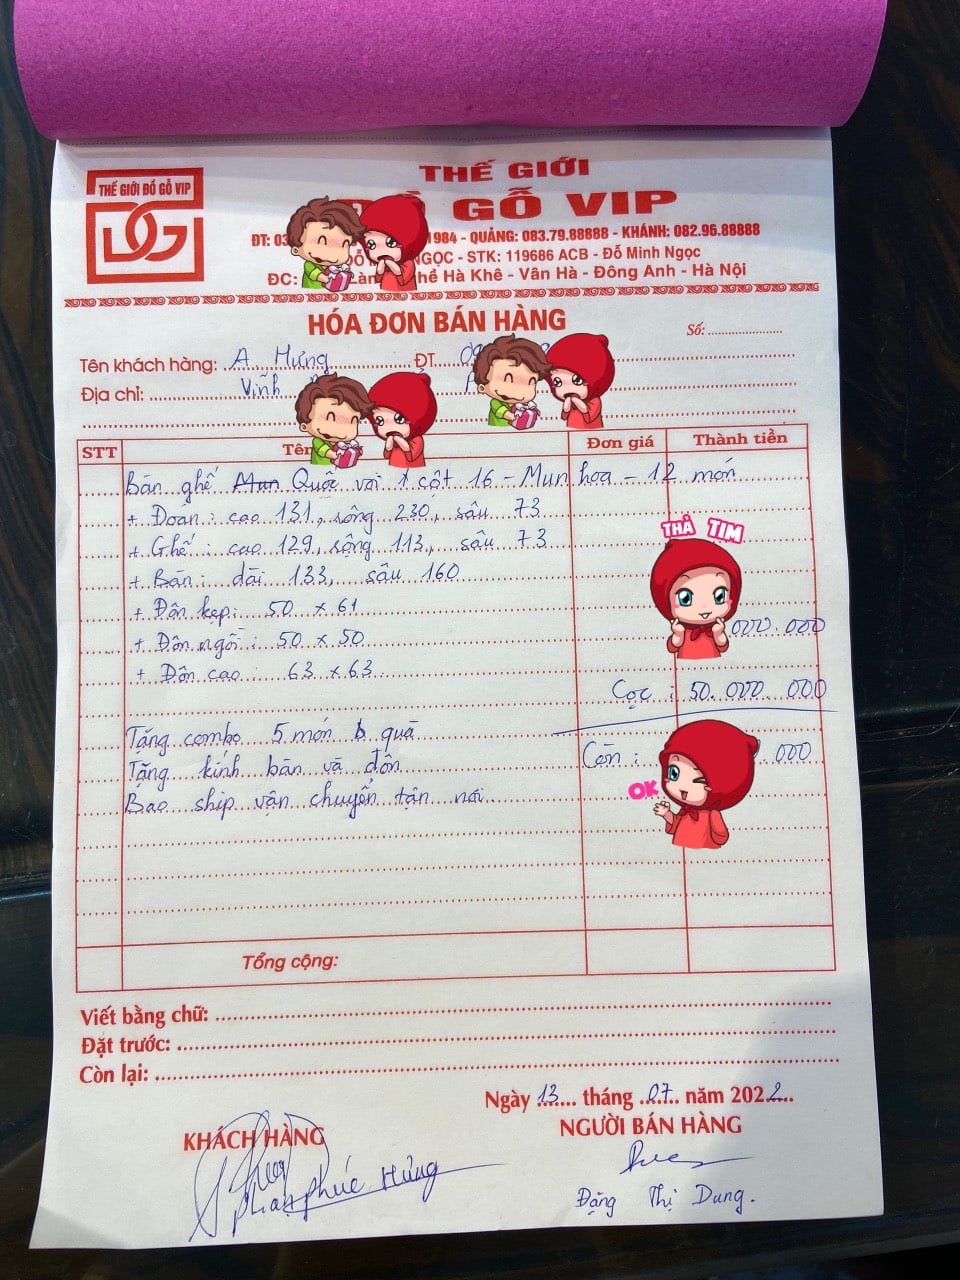 THẾ GIỚI ĐỒ GỖ VIP
THẾ GIỚI
GỖ VIP
ĐT: 03 1984 - QUẢNG: 083.79.88888 - KHÁNH: 082.96.88888
NGỌC - STK: 119686 ACB - Đỗ Minh Ngọc
ĐC: Hà Khê - Vân Hà - Đông Anh - Hà Nội
HÓA ĐƠN BÁN HÀNG
Số:
Tên khách hàng: A Hưng ĐT 09
Địa chỉ: Vĩnh
STT Tên Đơn giá Thành tiền
Bàn ghế Quốc voi 1 cột 16 - Mun hoa - 12 món
+ Đoản: cao 131, rộng 230, sâu 73
+ Ghế: cao 129, rộng 113, sâu 73
THẢ TIM
+ Bàn: dài 133, sâu 160
+ Đôn kẹp: 50 x 61
000.000
+ Đôn ngồi: 50 x 50
+ Đôn cao: 63 x 63
Cọc: 50.000 000
Tặng combo 5 món quà
Tặng kính bàn và đôn
Còn: .000
OK
Bao ship vận chuyển tận nơi
Tổng cộng:
Viết bằng chữ:
Đặt trước:
Còn lại:
Ngày 13 tháng 07 năm 2022
KHÁCH HÀNG NGƯỜI BÁN HÀNG
Phan phúc Hưng
Đặng Thị Dung.